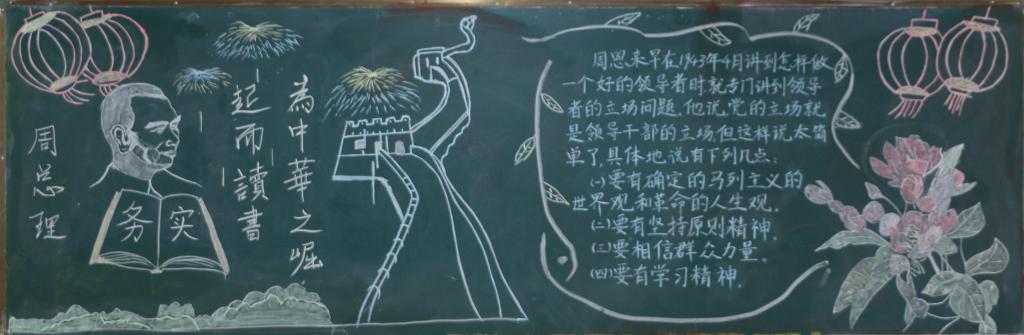 周总理
务实
為中華之崛
起而讀書
周恩来早在1943年4月讲到怎样做
一个好的领导者时就专门讲到领导
者的立场问题.他说,党的立场就
是领导干部的立场,但这样说太简
单了,具体地说有下列几点:
(一)要有确定的马列主义的
世界观和革命的人生观.
(二)要有坚持原则精神.
(三)要相信群众力量.
(四)要有学习精神.